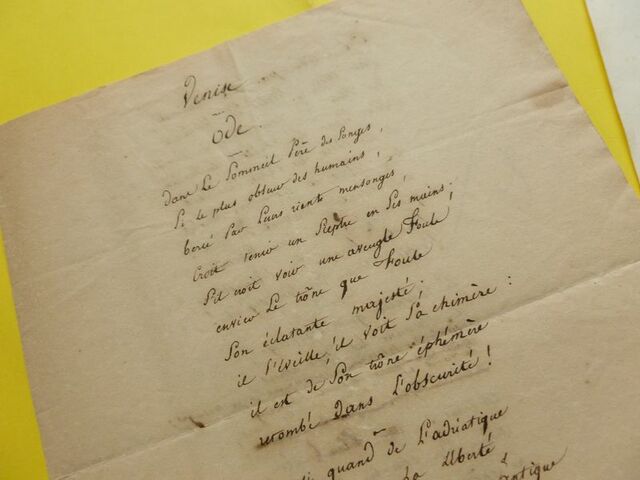 Venise
Ode.
dans Le Sommeil Père des Songes,
Si le plus obscur des humains,
bercé Par Leurs riants mensonges,
Croit tenir un Sceptre en Ses mains.
S'il croit voir une aveugle Foule,
envier Le trône que Foule
Son éclatante majesté.
il S'éveille, il voit Sa chimère :
il est de Son trône éphémère
retombé dans L'obscurité !
quand de L'adriatique
La Liberté
antique